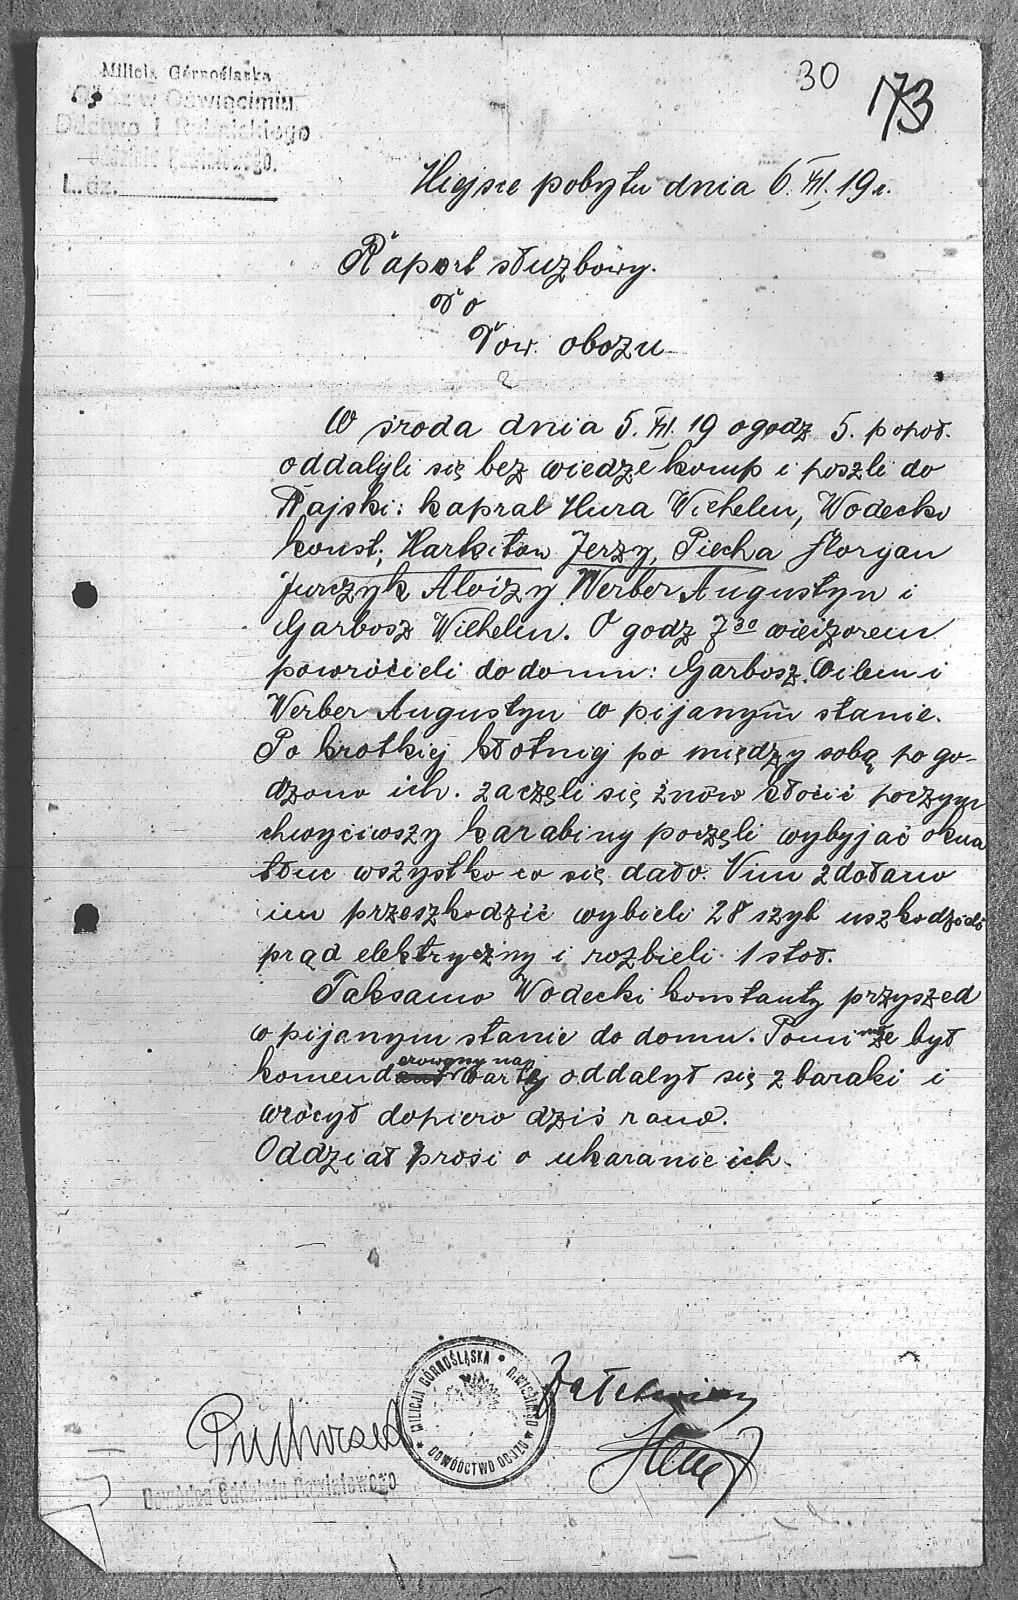 30
73
Milicja Górnośląska
Obóz w Oświęcimiu
Ddctwo I. Rybnickiego
L. dz.
Miejsce pobytu dnia 6. VII. 19 r.
Raport służbowy.
Do
Dow. obozu
W środa dnia 5. VII. 19 o godz 5. popoł.
oddalyli się bez wiedze komp i poszli do
Rajski: kapral Hura Wilhelm, Wodecki
konst; Harkiton Jerzy, Piecha Floryan
Jurczyk Aloizy Werber Augustyn i
Garbosz Wilhelm. O godz 7 30 wieczorem
powrócieli do domu: Garbosz. Wilem i
Werber Augustyn w pijanym stanie.
Po krotkiej kłotniej po między sobą pogo-
dzono ich. zaczęli się żnów kłócić poczym
chwyciwszy karabiny poczęli wybyjać okna
tłuc wszystko co się dało. Nim zdołano
im przeszkodzić wybieli 28 szyb uszkodzieli
prąd elektryczny i rozbieli 1 stoł.
Taksamo Wodecki konstanty przyszed
w pijanym stanie do domu. Pomimo że był
komenderowany na wartę oddalył się z baraki i
wrócył dopiero dziś rano.
Oddział prosi o ukaranie ich.
MILICJA GÓRNOŚLĄSKA
DOWÓDCTWO OBOZU
Dowódca Oddziału Powiatowego